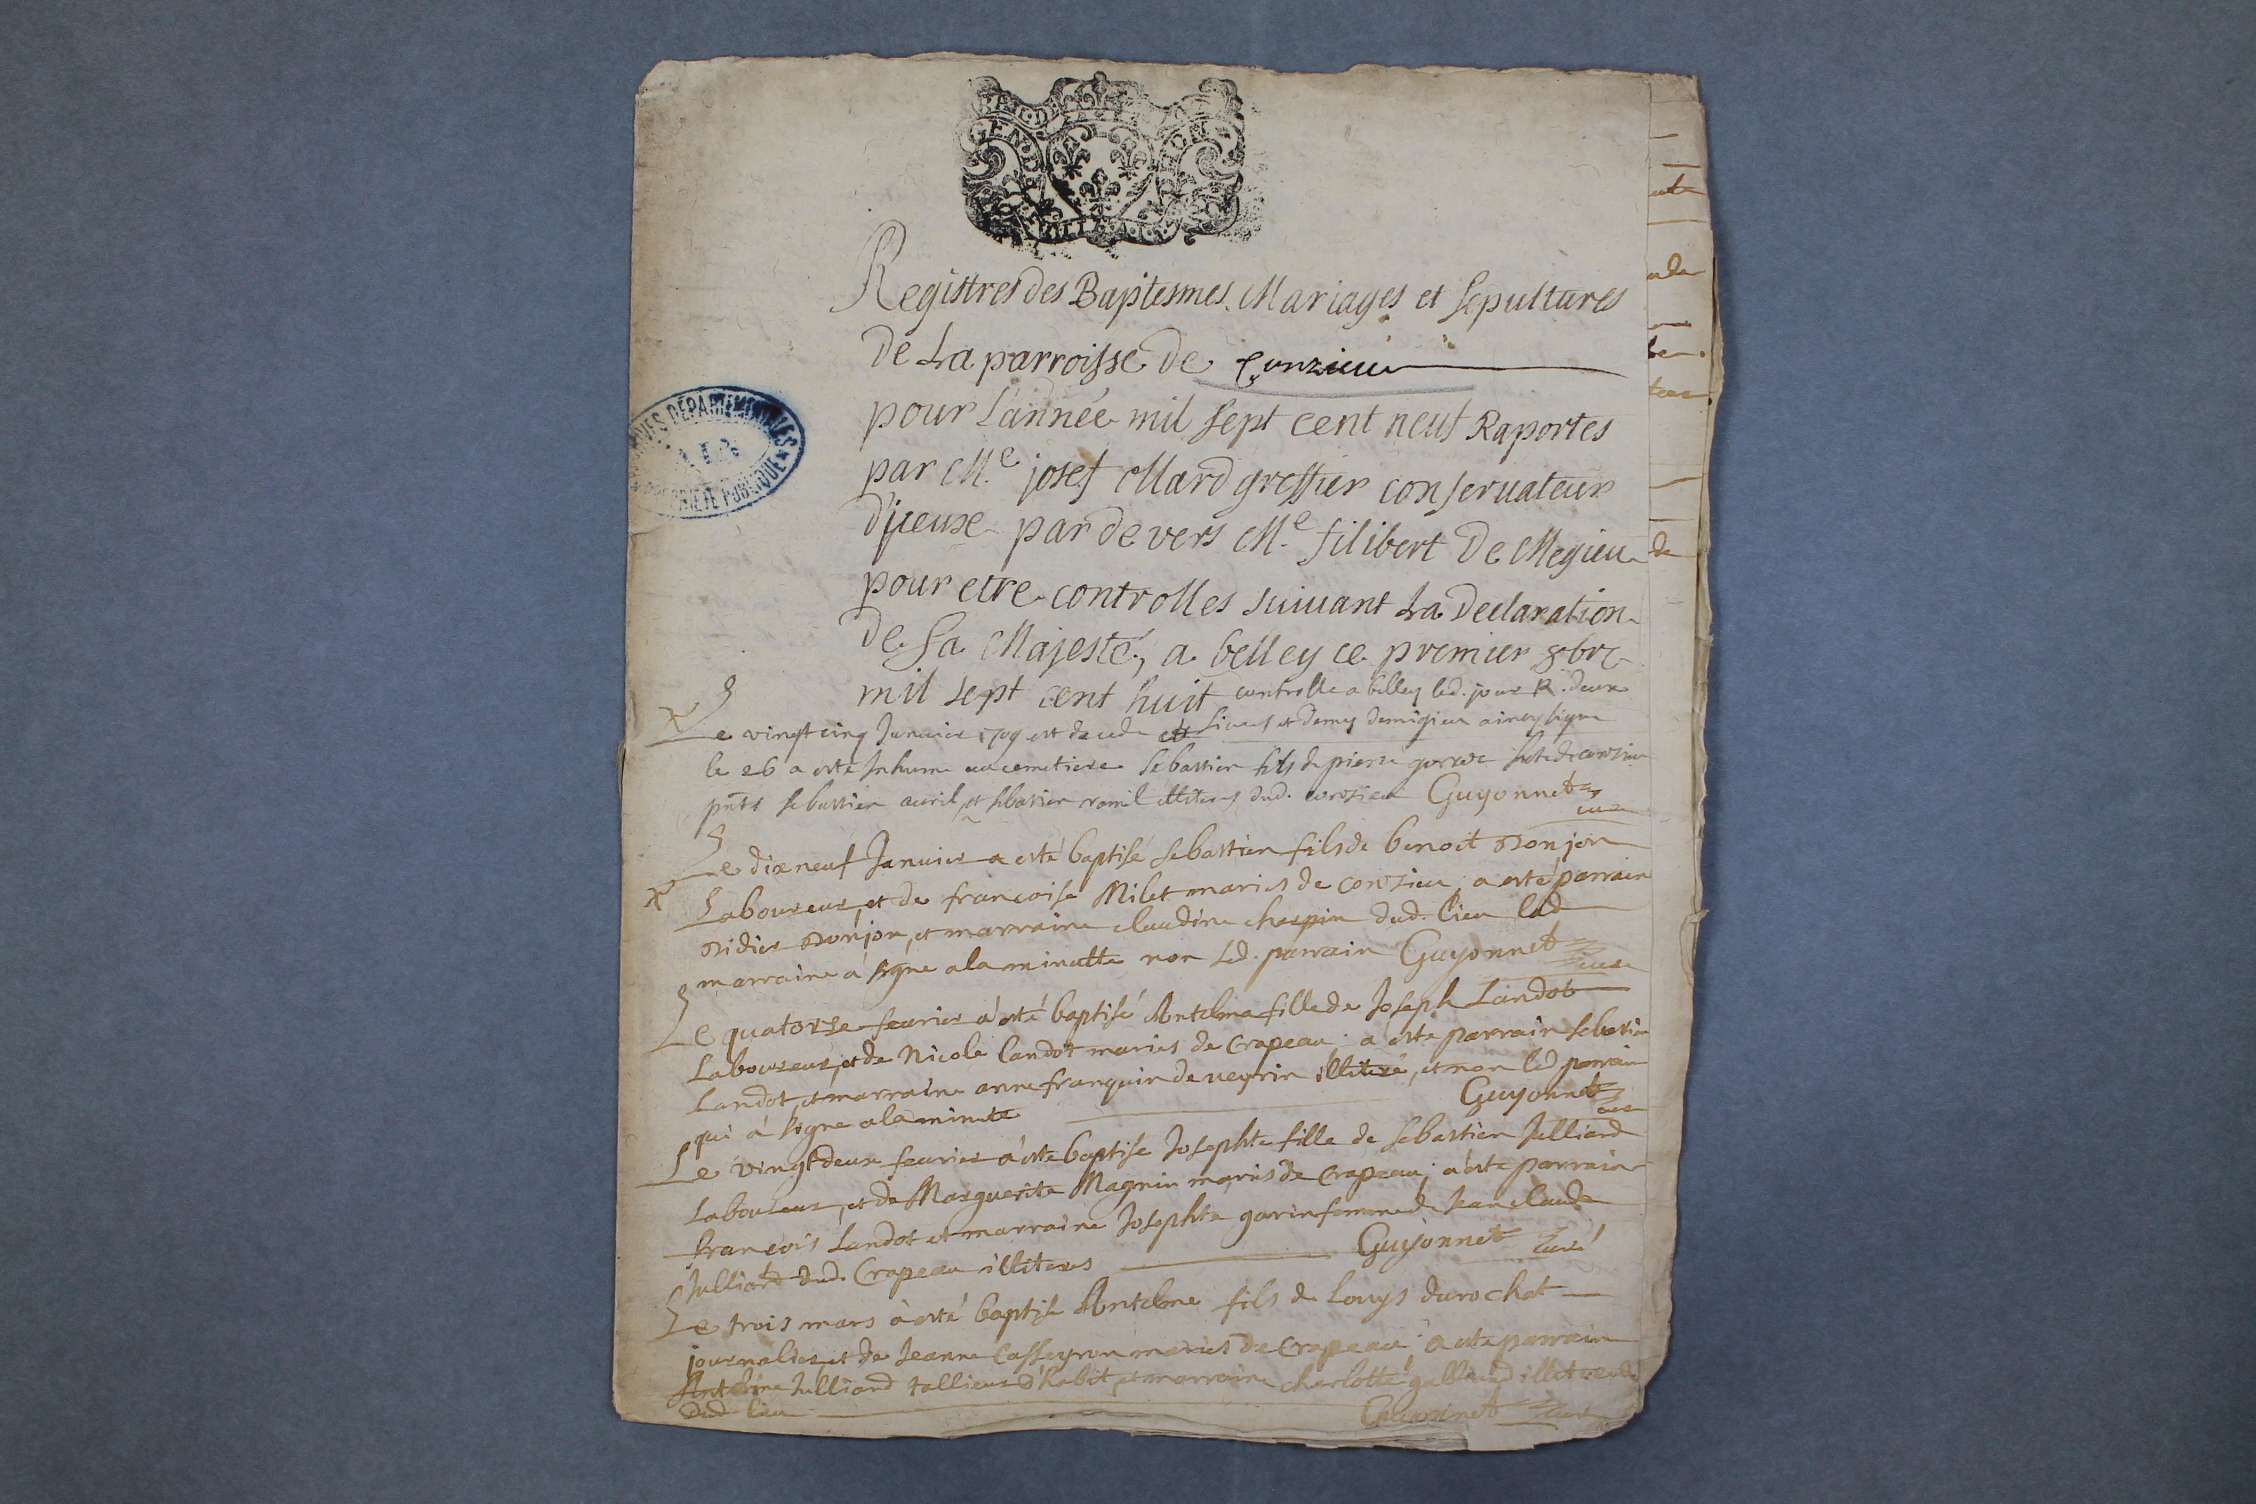 GENER DE
Registres des Baptesmes Mariages et sepultures
de La parroisse de Conzieu
pour L'année mil sept cent neuf Raportes
par Me. josef Mard greffier conservateur
d'jceux par de vers Me. filibert de Megieu
pour etre controlles suivant La Declaration
de Sa Majesté, a belley ce premier 8bre
mil sept cent huit controlle a belley led. jour R. deux
ARCHIVES DEPARTEMENTALES
PROPRIETE PUBLIQUE
livres et demy demigieu ainsy signe
Le vingt cinq Januier 1709 est decede et
le 26 a esté Inhumé au cemetiere Sebastien fils de pierre de conzieu
pnts sebastien auril et sebastien ramil illiteres dud. conzieu Guyonnet
curé
Le dixneuf Januier a esté baptisé sebastien fils de benoit Donjon
Laboureur, et de francoise Milet maries de conzieu, a esté parrain
Didier Donjon, et marraine claudine chespin dud. lieu lad
marraine a signe a la minutte non led. parrain Guyonnet
curé
Le quatorze feurier a esté baptisé Antelma fille de Joseph Landot
Laboureur, et de Nicole Landot maries de Crapeau; a esté parrain sebastien
Landot, et marraine anne franquin de ueyrin illiteré, et non led parrain
qui a signe a la minute Guyonnet
curé
Le vingt deux feurier a esté baptise Josephte fille de sebastien Julliard
Laboureur, et de Marguerite Magnin maries de Crapeau; a esté parrain
francois Landot et marraine Josephte garin femme de Jean claude
Julliard dud. Crapeau illiteres Guyonnet curé
Le trois mars a esté baptisé Antelme fils de Louys durochat
journalier et de Jeanne Casseyron maries de Crapeau; a esté parrain
Antelme Julliard tallieur d'habit, et marraine charlotte galland illiteres
dud. lieu Guyonnet curé